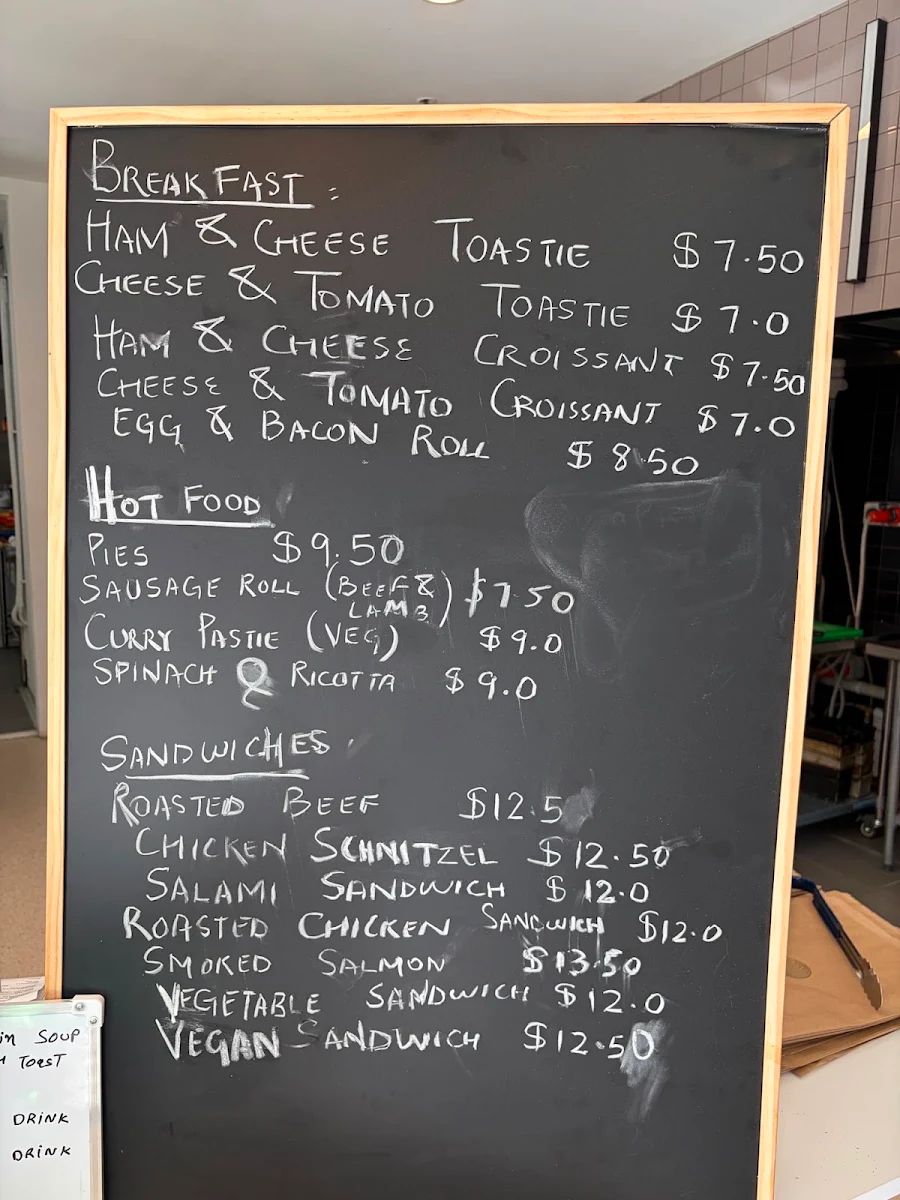 BREAKFAST :
HAM & CHEESE TOASTIE $7.50
CHEESE & TOMATO TOASTIE $7.0
HAM & CHEESE CROISSANT $7.50
CHEESE & TOMATO CROISSANT $7.0
EGG & BACON ROLL $8.50
HOT FOOD
PIES $9.50
SAUSAGE ROLL (BEEF & LAMB) $7.50
CURRY PASTIE (VEG) $9.0
SPINACH & RICOTTA $9.0
SANDWICHES
ROASTED BEEF $12.5
CHICKEN SCHNITZEL $12.50
SALAMI SANDWICH $12.0
ROASTED CHICKEN SANDWICH $12.0
SMOKED SALMON $13.50
VEGETABLE SANDWICH $12.0
VEGAN SANDWICH $12.50
SOUP
TOAST
DRINK
DRINK